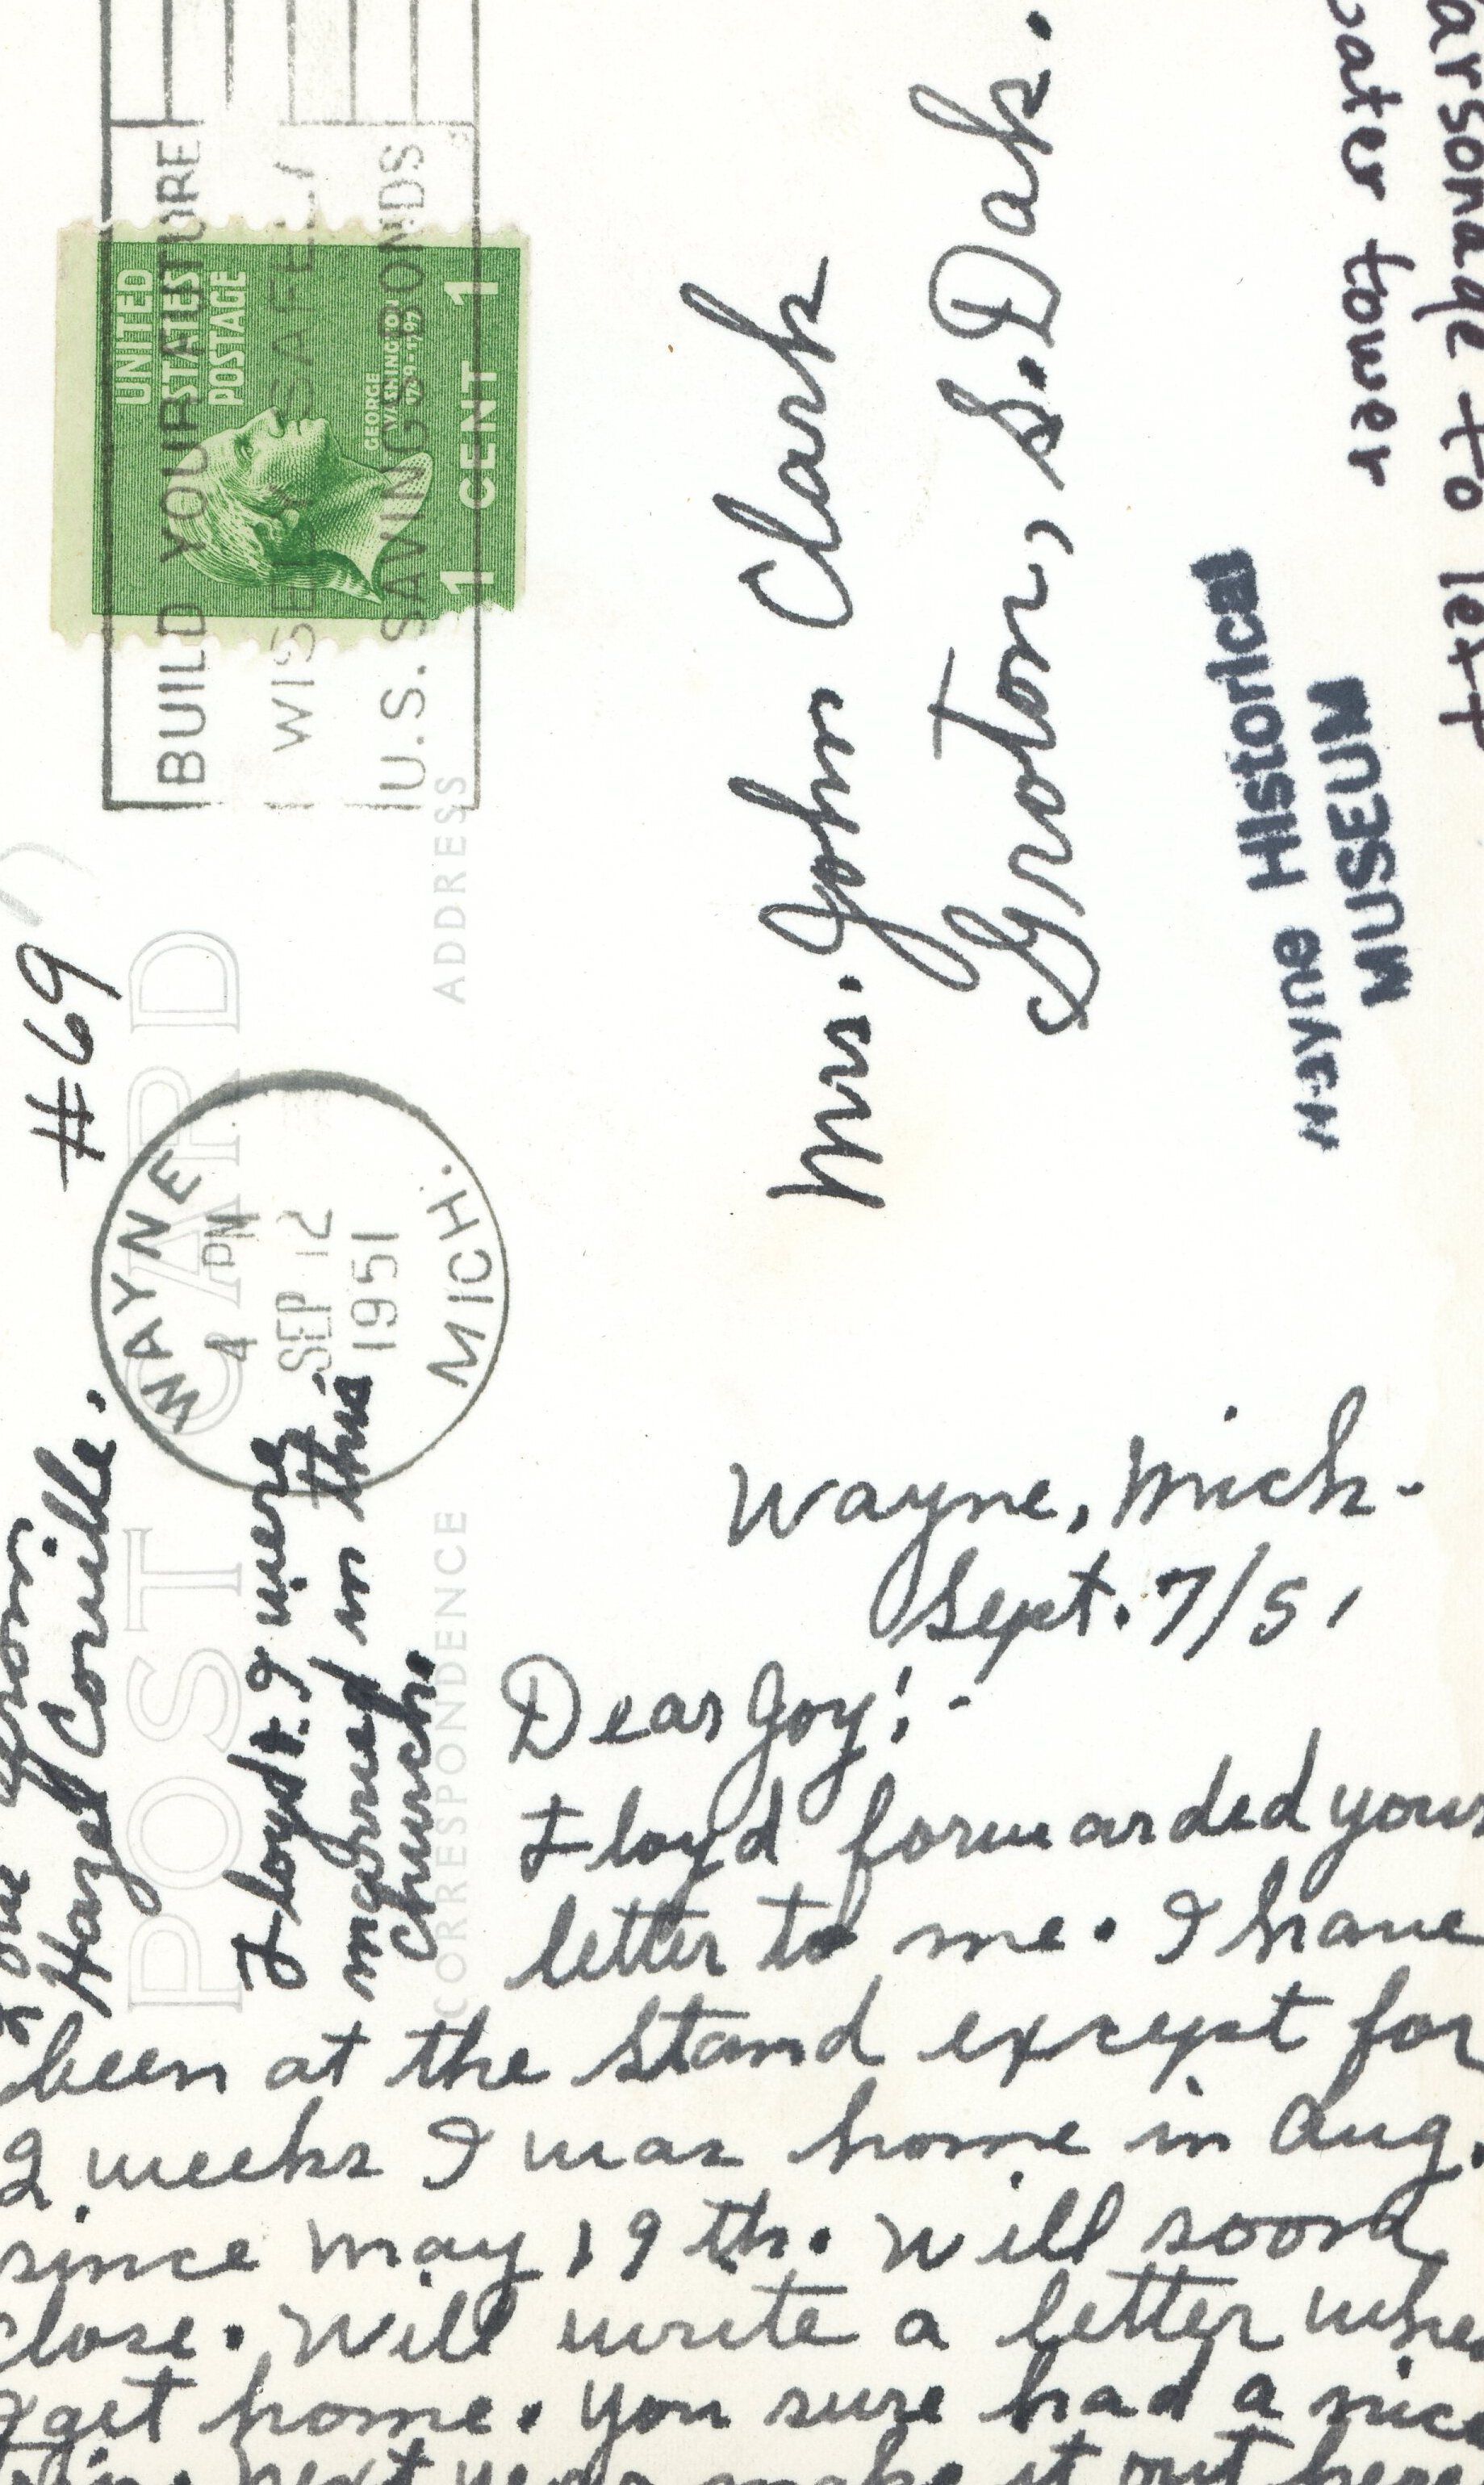 arsonage - to left
water tower
BUILD YOUR FUTURE
WISELY SAFELY
U.S. SAVINGS BONDS
UNITED
STATES
POSTAGE
GEORGE
WASHINGTON
1789-1797
1 CENT 1
#69
POST CARD
ADDRESS
CORRESPONDENCE
WAYNE
4 PM
SEP 12
1951
MICH.
Mrs. John Clark
Groton, S. Dak.
Wayne Historical
MUSEUM
from
Hazel Corville.
Floyd & I were
married in this
church.
Wayne, Mich-
Sept. 7/51
Dear Joy! -
Floyd forwarded your
letter to me. I have
been at the stand except for
2 weeks I was home in Aug.
since May 19th. Will soon
close. Will write a letter when
I get home. You sure had a nice
next year make it out here